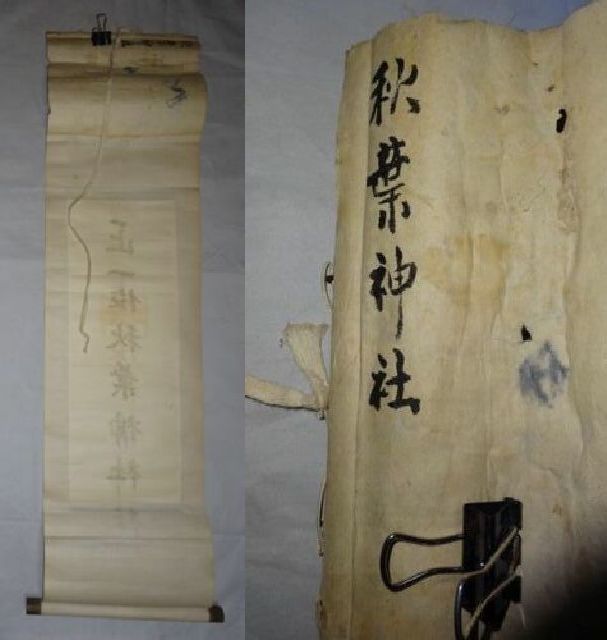 正一位秋葉神社
秋葉神社